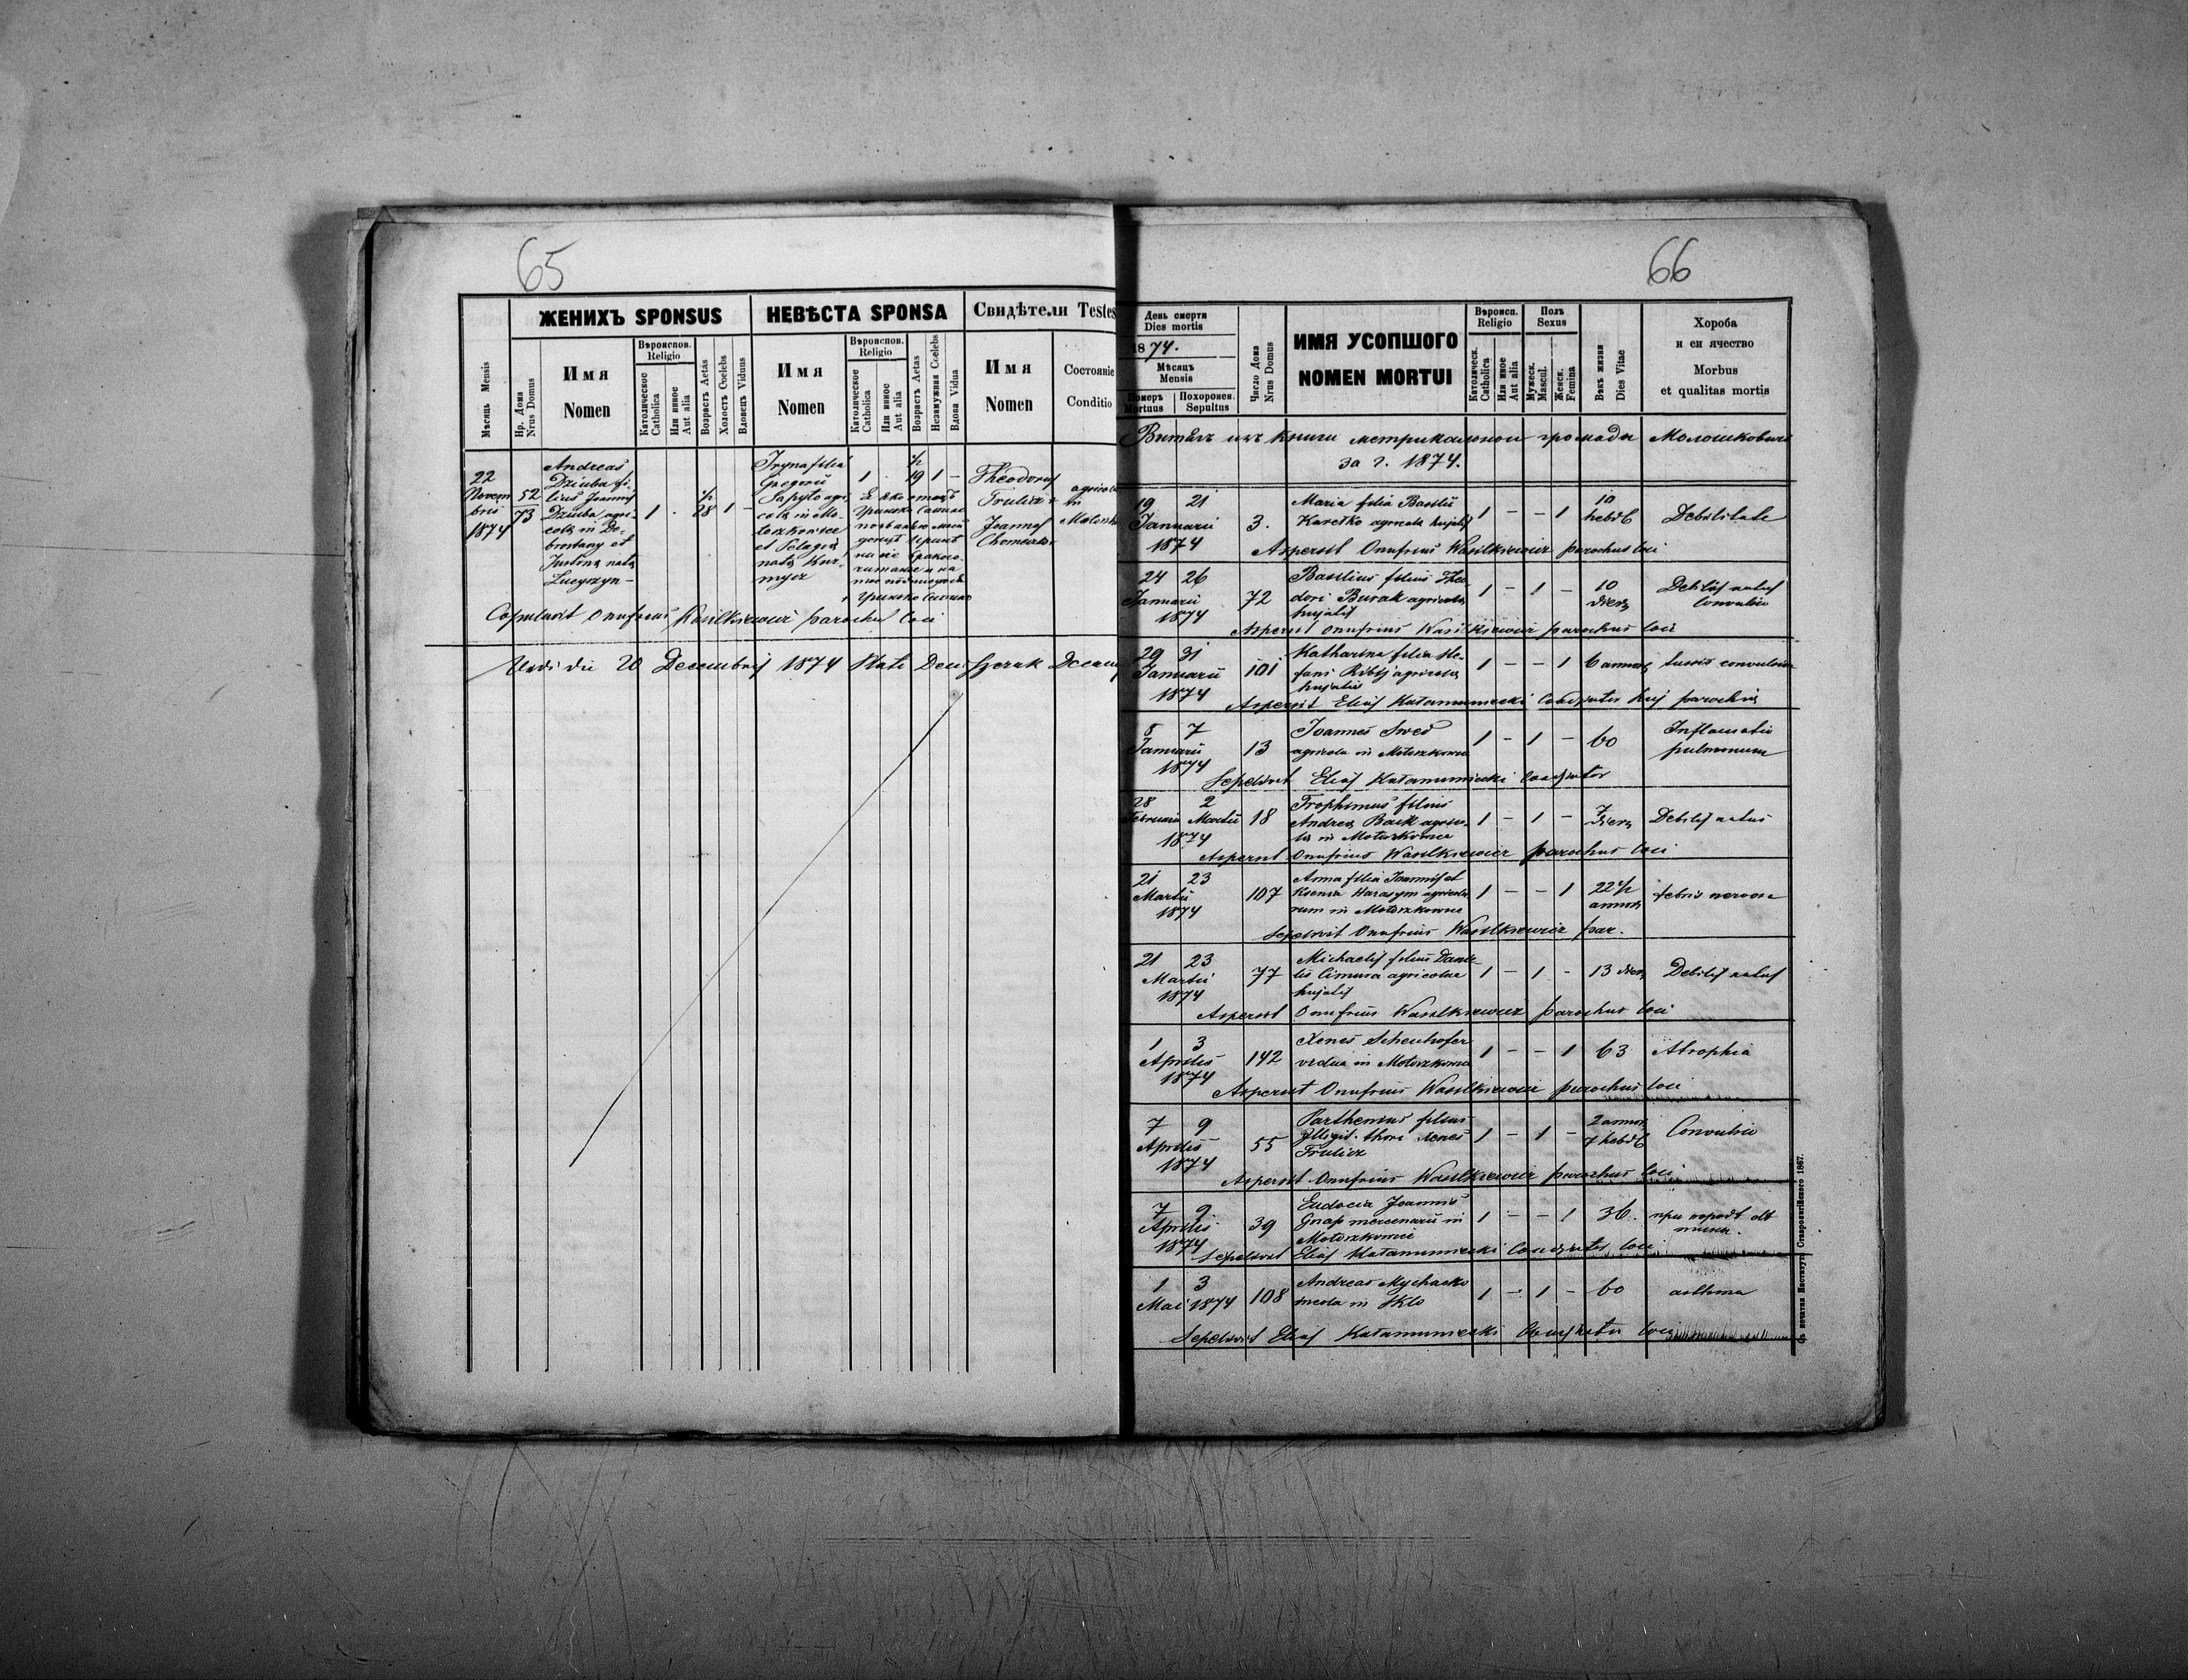 65
ЖЕНИХЪ SPONSUS
НЕВѢСТА SPONSA
Свидѣтели Testes
Мѣсяць Mensis
Нр. Дома Nrus Domus
Имя
Nomen
Вѣроиспов.
Religio
Католическое
Catholica
Или иное
Aut alia
Возрастъ Aetas
Холостъ Coelebs
Вдовецъ Viduus
Имя
Nomen
Вѣроиспов.
Religio
Католическое
Catholica
Или иное
Aut alia
Возрастъ Aetas
Незамужная Coelebs
Вдова Vidua
Имя
Nomen
Состояніе
Conditio
22
Novem
bri
1874
52
73
Andreas
Dziuba fi-
lius Joannis
Dziuba agri-
cola in Do-
brostany et
Justina nata
1
28
1
Iryna filia
Gregorii
Sapyto agri
cola in Mo-
toszkowice
et Pelagia
nata
1
19
1
Theodorus
Trulicz
Joannes
agricola
Copulavit Onufrius Wasilkiewicz parochus loci
Vidi die 20 Decembris 1874
66
День смерти
Dies mortis
1874.
Мѣсяцъ
Mensis
Померъ
Mortuus
Похоронен.
Sepultus
Число Дома
Nrus Domus
ИМЯ УСОПШОГО
NOMEN MORTUI
Вѣроисп.
Religio
Католическ.
Catholica
Или иное
Aut alia
Полъ
Sexus
Мужеск.
Mascul.
Женск.
Femina
Вѣкъ жизни
Dies Vitae
Хороба
и еи ячество
Morbus
et qualitas mortis
за г. 1874.
19 21
Januarii
1874
3.
Maria filia Basilii
Karetko agricola hujatis
1 – – 1
10
hebd
Debilitate
Aspersit Onufrius Wasilkiewicz parochus loci
24 26
Januarii
1874
72
Basilius filius Theo-
dori Burak agricola
hujatis
1 – 1 –
10
dies
Debilis natus
Convulsio
Aspersit Onufrius Wasilkiewicz parochus loci
29 31
Januarii
1874
101
Katharina filia Ste-
fani agricola
hujatis
1 – – 1
6 annos
tussis convulsiva
Aspersit Elias Kałamuniecki Cooperator huj parochia
5 7
Januarii
1874
13
Joannes Swed
agricola in Motoszkowice
1 – 1 –
60
Inflamatio
pulmonum
Sepelivit Elias Kałamuniecki Cooperator
28 2
Februarii Martii
1874
18
Trophimus filius
Andrea Baik agrico-
la in Motoszkowice
1 – 1 –
7
dies
Debilis natus
Aspersit Onufrius Wasilkiewicz parochus loci
21 23
Martii
1874
107
Anna filia Joannis et
Ksenia Harasym agricola
rum in Motoszkowice
1 – – 1
22 1/2
annos
febris nervosa
Sepelivit Onufrius Wasilkiewicz par.
21 23
Martii
1874
77
Michaelis filius Danie-
lis Cimura agricolae
hujatis
1 – 1 –
13 dies
Debilis natus
Aspersit Onufrius Wasilkiewicz parochus loci
1 3
Aprilis
1874
142
Xenes Schenhofer
vidua in Motoszkowice
1 – – 1
63
Atrophia
Aspersit Onufrius Wasilkiewicz parochus loci
7 9
Aprilis
1874
55
Parthenius filius
Illegit. thori Xenes
Trulicz
1 – 1 –
2 annos
7 hebd
Convulsio
Aspersit Onufrius Wasilkiewicz parochus loci
7 9
Aprilis
1874
39
Eudocia Joannis
Gnap mercenarii in
Motoszkowice
1 – – 1
36.
Sepelivit Elias Kałamuniecki Cooperator loci
1 3
Mai 1874
108
Andreas Mychacko
incola in Szklo
1 – 1 –
60
asthma
Sepelivit Elias Kałamuniecki Cooperator loci
Съ печатни Института Ставропигійского 1867.